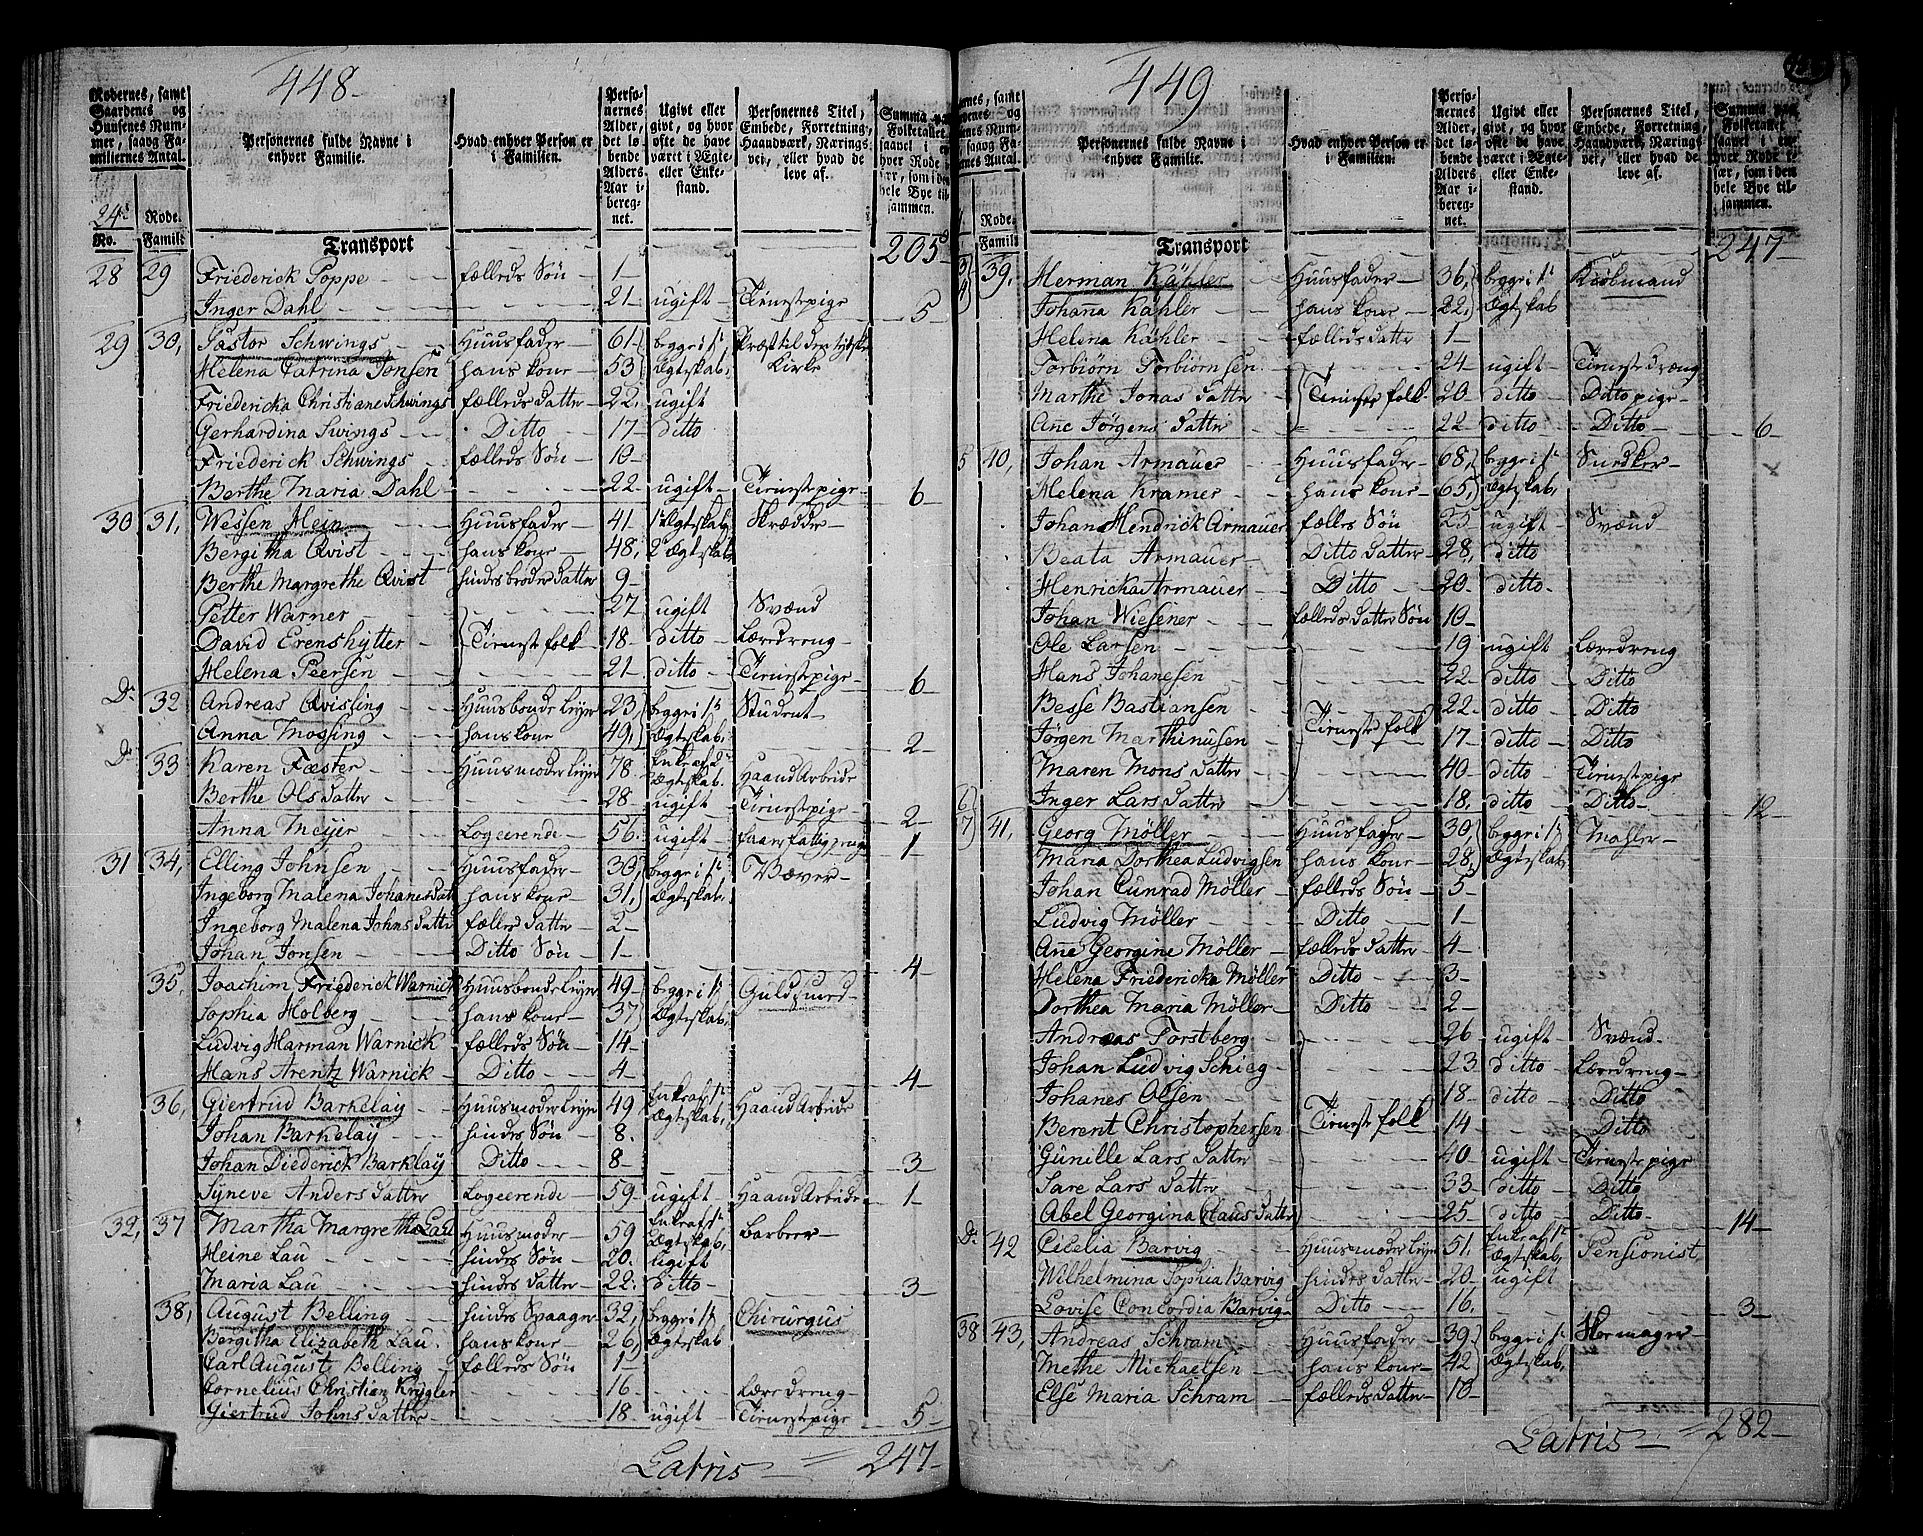 448.
Rodernes, samt Gaardenes og Huusenes Nummer, saavg Familiernes Antal.
Personernes fulde Navne i enhver Familie.
Hvad enhver Person er i Familien.
Personernes Alder, det løbende Alders Aar iberegnet.
Ugivt eller givt, og hvor ofte de have været i Ægte- eller Enkestand.
Personernes Titel, Embede, Forretning, Haandværk, Næringsvei, eller hvad de leve af.
24de Rode.
No. Famili
Transport 205
28 29 Friederick Poppe fælleds Søn 1
Inger Dahl 21 ugift Tienestepige 5
29 30, Pastor Schwings Huusfader 61 begge i 1te Præst til den tydske
Helena Catrina Jonsen hans kone 53 Ægteskab, Kirke
Friedericka Christiane Schwings fælleds Datter 22. ugift
Gerhardina Swings Ditto 17 ditto
Friederick Schwings fælleds Søn 10
Berthe Maria Dahl 22 ugift Tienestepige 6
30 31, Wessen Hein Huusfader 41 1te Ægteskab Skrædder
Bergitha Qvist hans kone 48, 2 Ægteskab
Berthe Margrethe Qvist hindes broder Datter 9
Petter Warner 27 ugift Svænd
David Erenshytter Tienestefolk 18 ditto Læredreng
Helena Peersen 21 ditto Tienestepige 6
Do 32 Andreas Qvisling Huusbonde leyer 23 begge i 1te Student
Anna Mossing hans kone 49, Ægteskab, 2
Do 33 Karen Fæster Huusmoder leyer 78 Ægteskab. Haand Arbeide
Berthe Ols Datter 28 ugift Tienestepige 2
Anna Meyer Logeerende 56. ugift 1
31 34, Elling Johnsen Huusfader 30, begge i 1te Væver
Ingeborg Malena Johanes Dat hans kone 31, Ægteskab,
Ingeborg Malena Johns Datter fælleds Datter 2
Johan Jonsen Ditto Søn 1 4
35, Joachim Friederick Warnick Huusbonde leyer 49 begge i 1te Guldsmed
Sophia Holberg hans kone 37 Ægteskab,
Ludvig Harman Warnick fælleds Søn 14
Hans Arentz Warnick Ditto 4 4
36, Giertrud Barkelay Huusmoder leyer 49 Enke af 1te Ægteskab, Haand Arbeide
Johan Barkelay hindes Søn 8.
Johan Diederick Barklay Ditto 8 3
Syneve Anders Datter Logeerende 59 ugift Haand Arbeide 1
32, 37 Martha Margretha Lau Huusmoder 59 Enke af 1te Ægteskab, Barbeer
Heine Lau hindes Søn 20. ugift
Maria Lau hindes Datter 22. ditto 3
38, August Belling 32, begge i 1te Chirurgus
Bergitha Elizabeth Lau. hans kone 26, Ægteskab
Carl August Belling fælleds Søn 1
Cornelius Christian Krygler 16 Læredreng
Giertrud Johns Datter 18 ugift Tienestepige 5
Latris 247
449
Personernes fulde Navne i enhver Familie.
Hvad enhver Person er i Familien.
Personernes Alder, det løbende Alders Aar iberegnet.
Ugivt eller givt, og hvor ofte de have været i Ægte- eller Enkestand.
Personernes Titel, Embede, Forretning, Haandværk, Næringsvei, eller hvad de leve af.
Rode.
Famili
Transport 247
39, Herman Kähler Huusfader 36, begge i 1te Kiøbmand
Johana Kähler hans kone 22, Ægteskab
Helena Kähler fælleds Datter 1
Torbiørn Torbiørnsen 24 ugift Tieneste dræng
Marthe Jonas Datter Tieneste folk 20 ditto Ditto pige
Ane Jörgens Datter 22 ditto Ditto 6
5 40, Johan Armauer Huusfader 68, begge i 1te
Helena Kramer hans kone 65, Ægteskab,
Johan Hendrick Armauer fælles Søn 25 ugift Svænd
Beata Armauer Ditto Datter 28, ditto
Henricka Armauer Ditto 20 ditto
Johan Wiesener fælleds Datter Søn 10
Ole Larsen 19 ugift Læredreng
Hans Johanesen 22 ditto Ditto
Besse Bastiansen 22 ditto Ditto
Jørgen Marthinusen Tieneste folk 17 ditto Ditto
Maren Mons Datter 40 ditto Tienestepige
Inger Lars Datter 18, ditto Ditto 12
6 7 41, Georg Möller Huusfader 30, begge i 1te Mahler
Maria Dorthea Ludvigsen hans kone 28, Ægteskab,
Johan Cunrad Möller fælleds Søn 5
Ludvig Möller Ditto 1
Ane Georgine Möller fælleds Datter 4
Helena Friedericka Möller Ditto 3
Dorthea Maria Möller Ditto 2
Andreas Forstberg 26 ugift Svænd
Johan Ludvig Schieg 23 ditto Læredreng
Johanes Olsen 18 ditto Ditto
Berent Christophersen Tieneste folk 14 Ditto
Gunille Lars Datter 40 ugift Tienestepige
Sare Lars Datter 33 ditto Ditto
Abel Georgina Claus Datter 25 ditto Ditto 14
Do 42 Cicelia Barvig Huusmoder leyer 51, Enke af 1te Ægteskab, Pensionist,
Wilhelmina Sophia Barvig hindes Datter 20 ugift
Lovise Concordia Barvig Ditto 16, 3
38 43, Andreas Schram Huusfader 39 begge i 1te
Methe Michaelsen hans kone 42 Ægteskab,
Else Maria Schram fælleds Datter 10
Latris 282